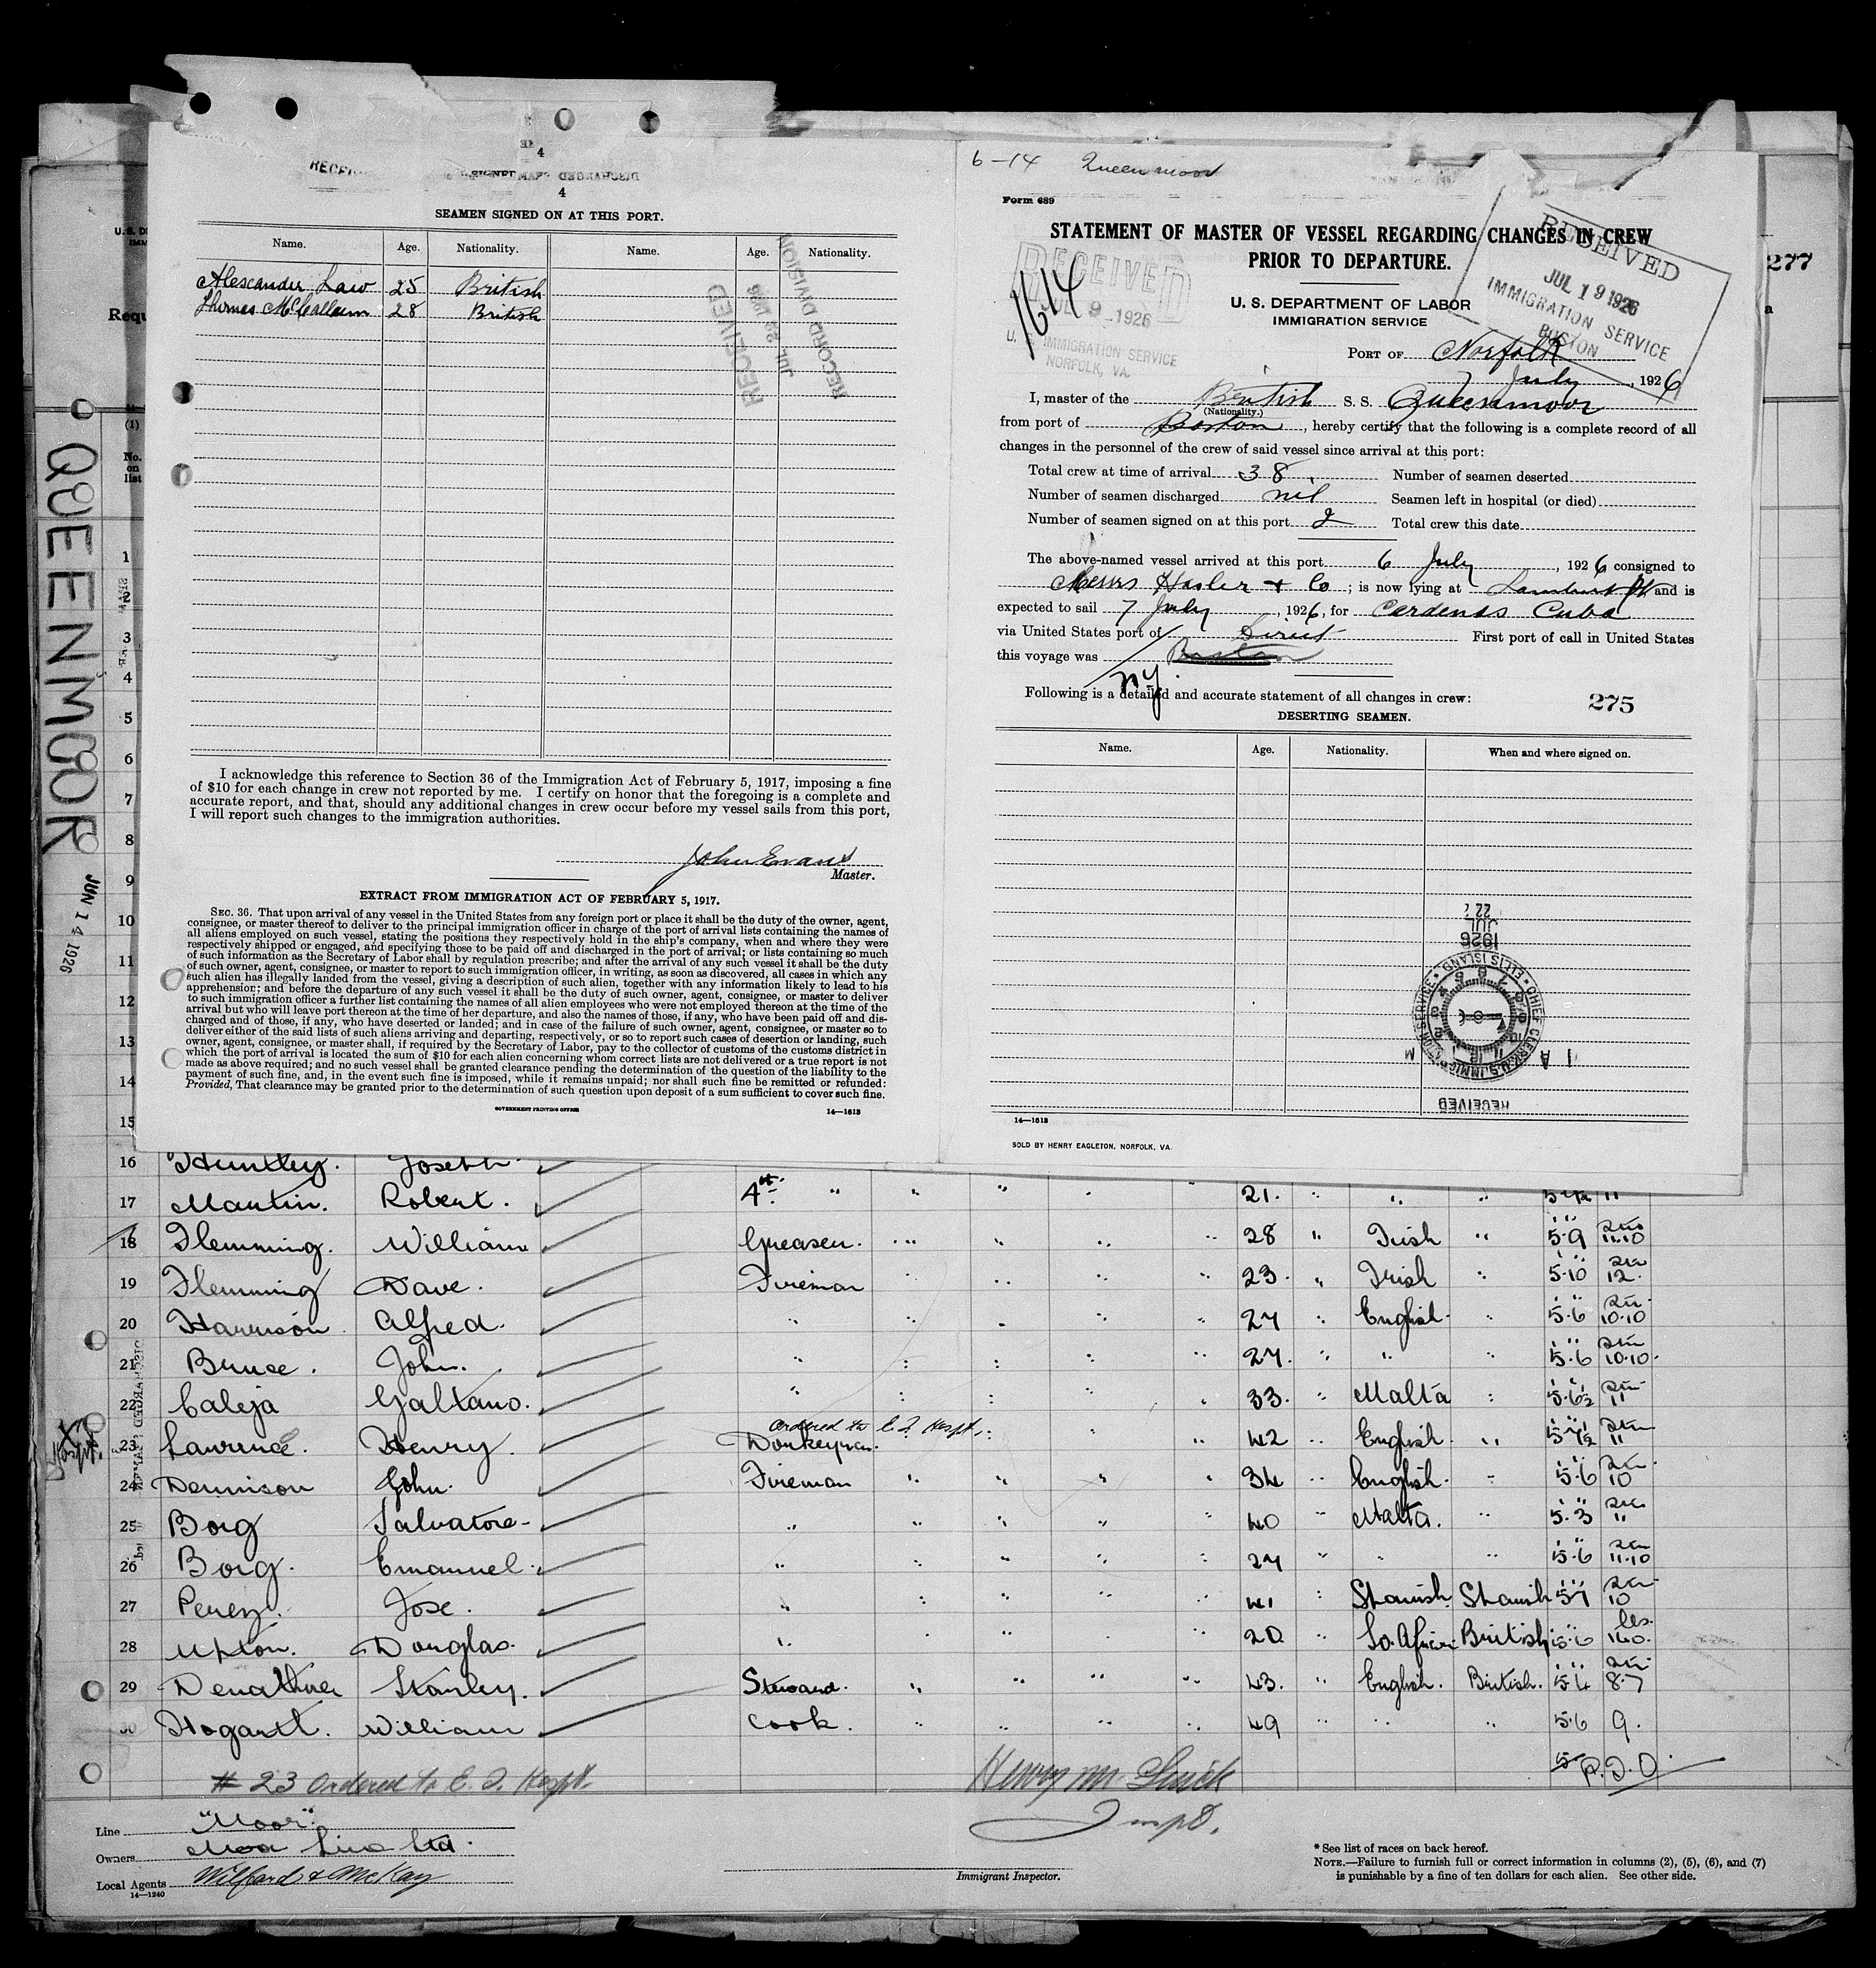 4
4
SEAMEN SIGNED ON AT THIS PORT.
Name. Age. Nationality. Name. Age. Nationality.
Alexander Law 25 British
Thomas McCallum 28 British
RECEIVED
JUL 22 1926
RECORD DIVISION
I acknowledge this reference to Section 36 of the Immigration Act of February 5, 1917, imposing a fine
of $10 for each change in crew not reported by me. I certify on honor that the foregoing is a complete and
accurate report, and that, should any additional changes in crew occur before my vessel sails from this port,
I will report such changes to the immigration authorities.
John Evans
Master.
EXTRACT FROM IMMIGRATION ACT OF FEBRUARY 5, 1917.
SEC. 36. That upon arrival of any vessel in the United States from any foreign port or place it shall be the duty of the owner, agent,
consignee, or master thereof to deliver to the principal immigration officer in charge of the port of arrival lists containing the names of
all aliens employed on such vessel, stating the positions they respectively hold in the ship's company, when and where they were
respectively shipped or engaged, and specifying those to be paid off and discharged in the port of arrival; or lists containing so much
of such information as the Secretary of Labor shall by regulation prescribe; and after the arrival of any such vessel it shall be the duty
of such owner, agent, consignee, or master to report to such immigration officer, in writing, as soon as discovered, all cases in which any
such alien has illegally landed from the vessel, giving a description of such alien, together with any information likely to lead to his
apprehension; and before the departure of any such vessel it shall be the duty of such owner, agent, consignee, or master to deliver
to such immigration officer a further list containing the names of all alien employees who were not employed thereon at the time of the
arrival but who will leave port thereon at the time of her departure, and also the names of those, if any, who have been paid off and dis-
charged and of those, if any, who have deserted or landed; and in case of the failure of such owner, agent, consignee, or master so to
deliver either of the said lists of such aliens arriving and departing, respectively, or so to report such cases of desertion or landing, such
owner, agent, consignee, or master shall, if required by the Secretary of Labor, pay to the collector of customs of the customs district in
which the port of arrival is located the sum of $10 for each alien concerning whom correct lists are not delivered or a true report is not
made as above required; and no such vessel shall be granted clearance pending the determination of the question of the liability to the
payment of such fine, and, in the event such fine is imposed, while it remains unpaid; nor shall such fine be remitted or refunded:
Provided, That clearance may be granted prior to the determination of such question upon deposit of a sum sufficient to cover such fine.
GOVERNMENT PRINTING OFFICE 14—1613
6-14 Queenmoor
Form 689
STATEMENT OF MASTER OF VESSEL REGARDING CHANGES IN CREW
PRIOR TO DEPARTURE.
U. S. DEPARTMENT OF LABOR
IMMIGRATION SERVICE
1614
RECEIVED
JUL 9 1926
U. S. IMMIGRATION SERVICE
NORFOLK, VA.
RECEIVED
JUL 19 1926
IMMIGRATION SERVICE
BOSTON
PORT OF Norfolk
7 July, 1926
I, master of the British S. S. Queenmoor
(Nationality.)
from port of Boston, hereby certify that the following is a complete record of all
changes in the personnel of the crew of said vessel since arrival at this port:
Total crew at time of arrival 38 Number of seamen deserted
Number of seamen discharged nil Seamen left in hospital (or died)
Number of seamen signed on at this port 2 Total crew this date
The above-named vessel arrived at this port 6 July, 1926 consigned to
Messrs Hasler & Co; is now lying at Lambert Pt and is
expected to sail 7 July, 1926, for Cardenas Cuba
via United States port of Direct First port of call in United States
this voyage was Boston
ny.
Following is a detailed and accurate statement of all changes in crew:
275
DESERTING SEAMEN.
Name. Age. Nationality. When and where signed on.
1926
JUL 22
CHIEF CLERK U.S. IMMIGRATION SERVICE ELLIS ISLAND
A M
RECEIVED
14—1613
SOLD BY HENRY EAGLETON, NORFOLK, VA.
277
QUEENMOOR
JUN 14 1926
(1)
No.
on
list
1
2
3
4
5
6
7
8
9
10
11
12
13
14
15
16 Huntley. Joseph
17 Martin. Robert. 4th " " " " " 21. " " " 11
18 Flemming. William Greaser. " " " " 28 " Irish " 5·9 11·10
19 Flemming Dave. Fireman " " " " 23. " Irish " 5·10 12.
20 Harrison Alfred. " " " " 27 " English. " 5·6 10·10
21 Bruce. John. " " " " " 27. " " " 5·6 10·10.
22 Caleja Galtano. " " " " " 33. " Malta " 5·6½ 11
ordered to E. I. Hospt.
Hospt. 23 Laurence. Henry. Donkeyman. " " " 42 " English. " 5·7½ 11
24 Dennison John. Fireman " " " " 34 " English. " 5·6 10
25 Borg Salvatore " " " " " 40 " Malta. " 5·3 11
26 Borg. Emanuel. " " " " " 27 " " " 5·6 11·10
27 Perez. Jose. " " " " " 41 " Spanish Spanish 5·7 10
28 Upton. Douglas. " " " " " 20 " So. African British 5·6 lbs. 160.
29 Stanley. Steward. " " " " 43. English. British. 5·4 8·7
30 Hogarth. William Cook. " " " " 49 " " " 5·6 9.
# 23 Ordered to E. I. Hospt.
Inspt.
Line "Moor"
Owners Moor Line Ltd.
Local Agents Wilford & McKay
14—1240
Immigrant Inspector.
* See list of races on back hereof.
NOTE.—Failure to furnish full or correct information in columns (2), (5), (6), and (7)
is punishable by a fine of ten dollars for each alien. See other side.